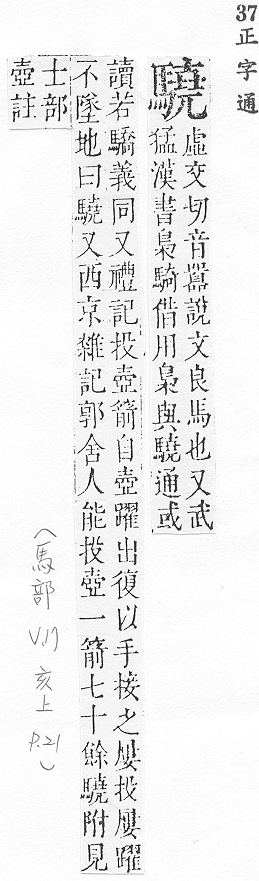 37正字通
驍
虛交切音囂說文良馬也又武
猛漢書梟騎借用梟與驍通或
讀若驕義同又禮記投壺箭自壺躍出復以手接之屢投屢躍
不墜地曰驍又西京雜記郭舍人能投壺一箭七十餘驍附見
士部
壺註
(馬部 V.17 亥上 P.21)